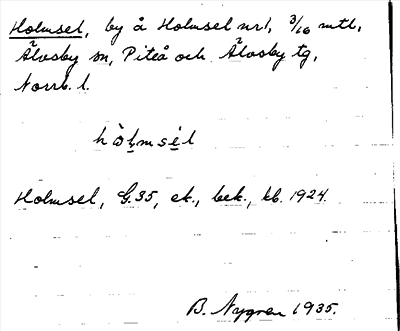 Holmsel, by å Holmsel nr 1, 3/16 mtl,
Älvsby sn, Piteå och Älvsby tg,
Norrb. l.
Holmsel, G.35, ek., bek., kb. 1924.
B. Nygren 1935.